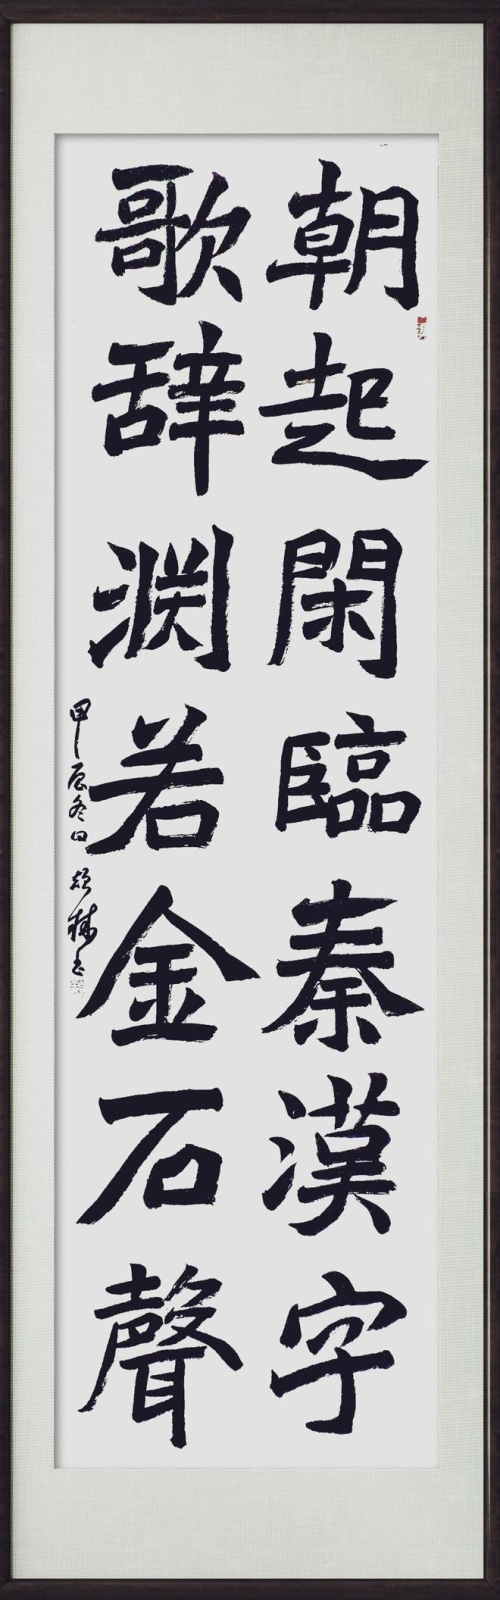 朝起閑臨秦漢字
歌辞渊若金石聲
甲辰冬日